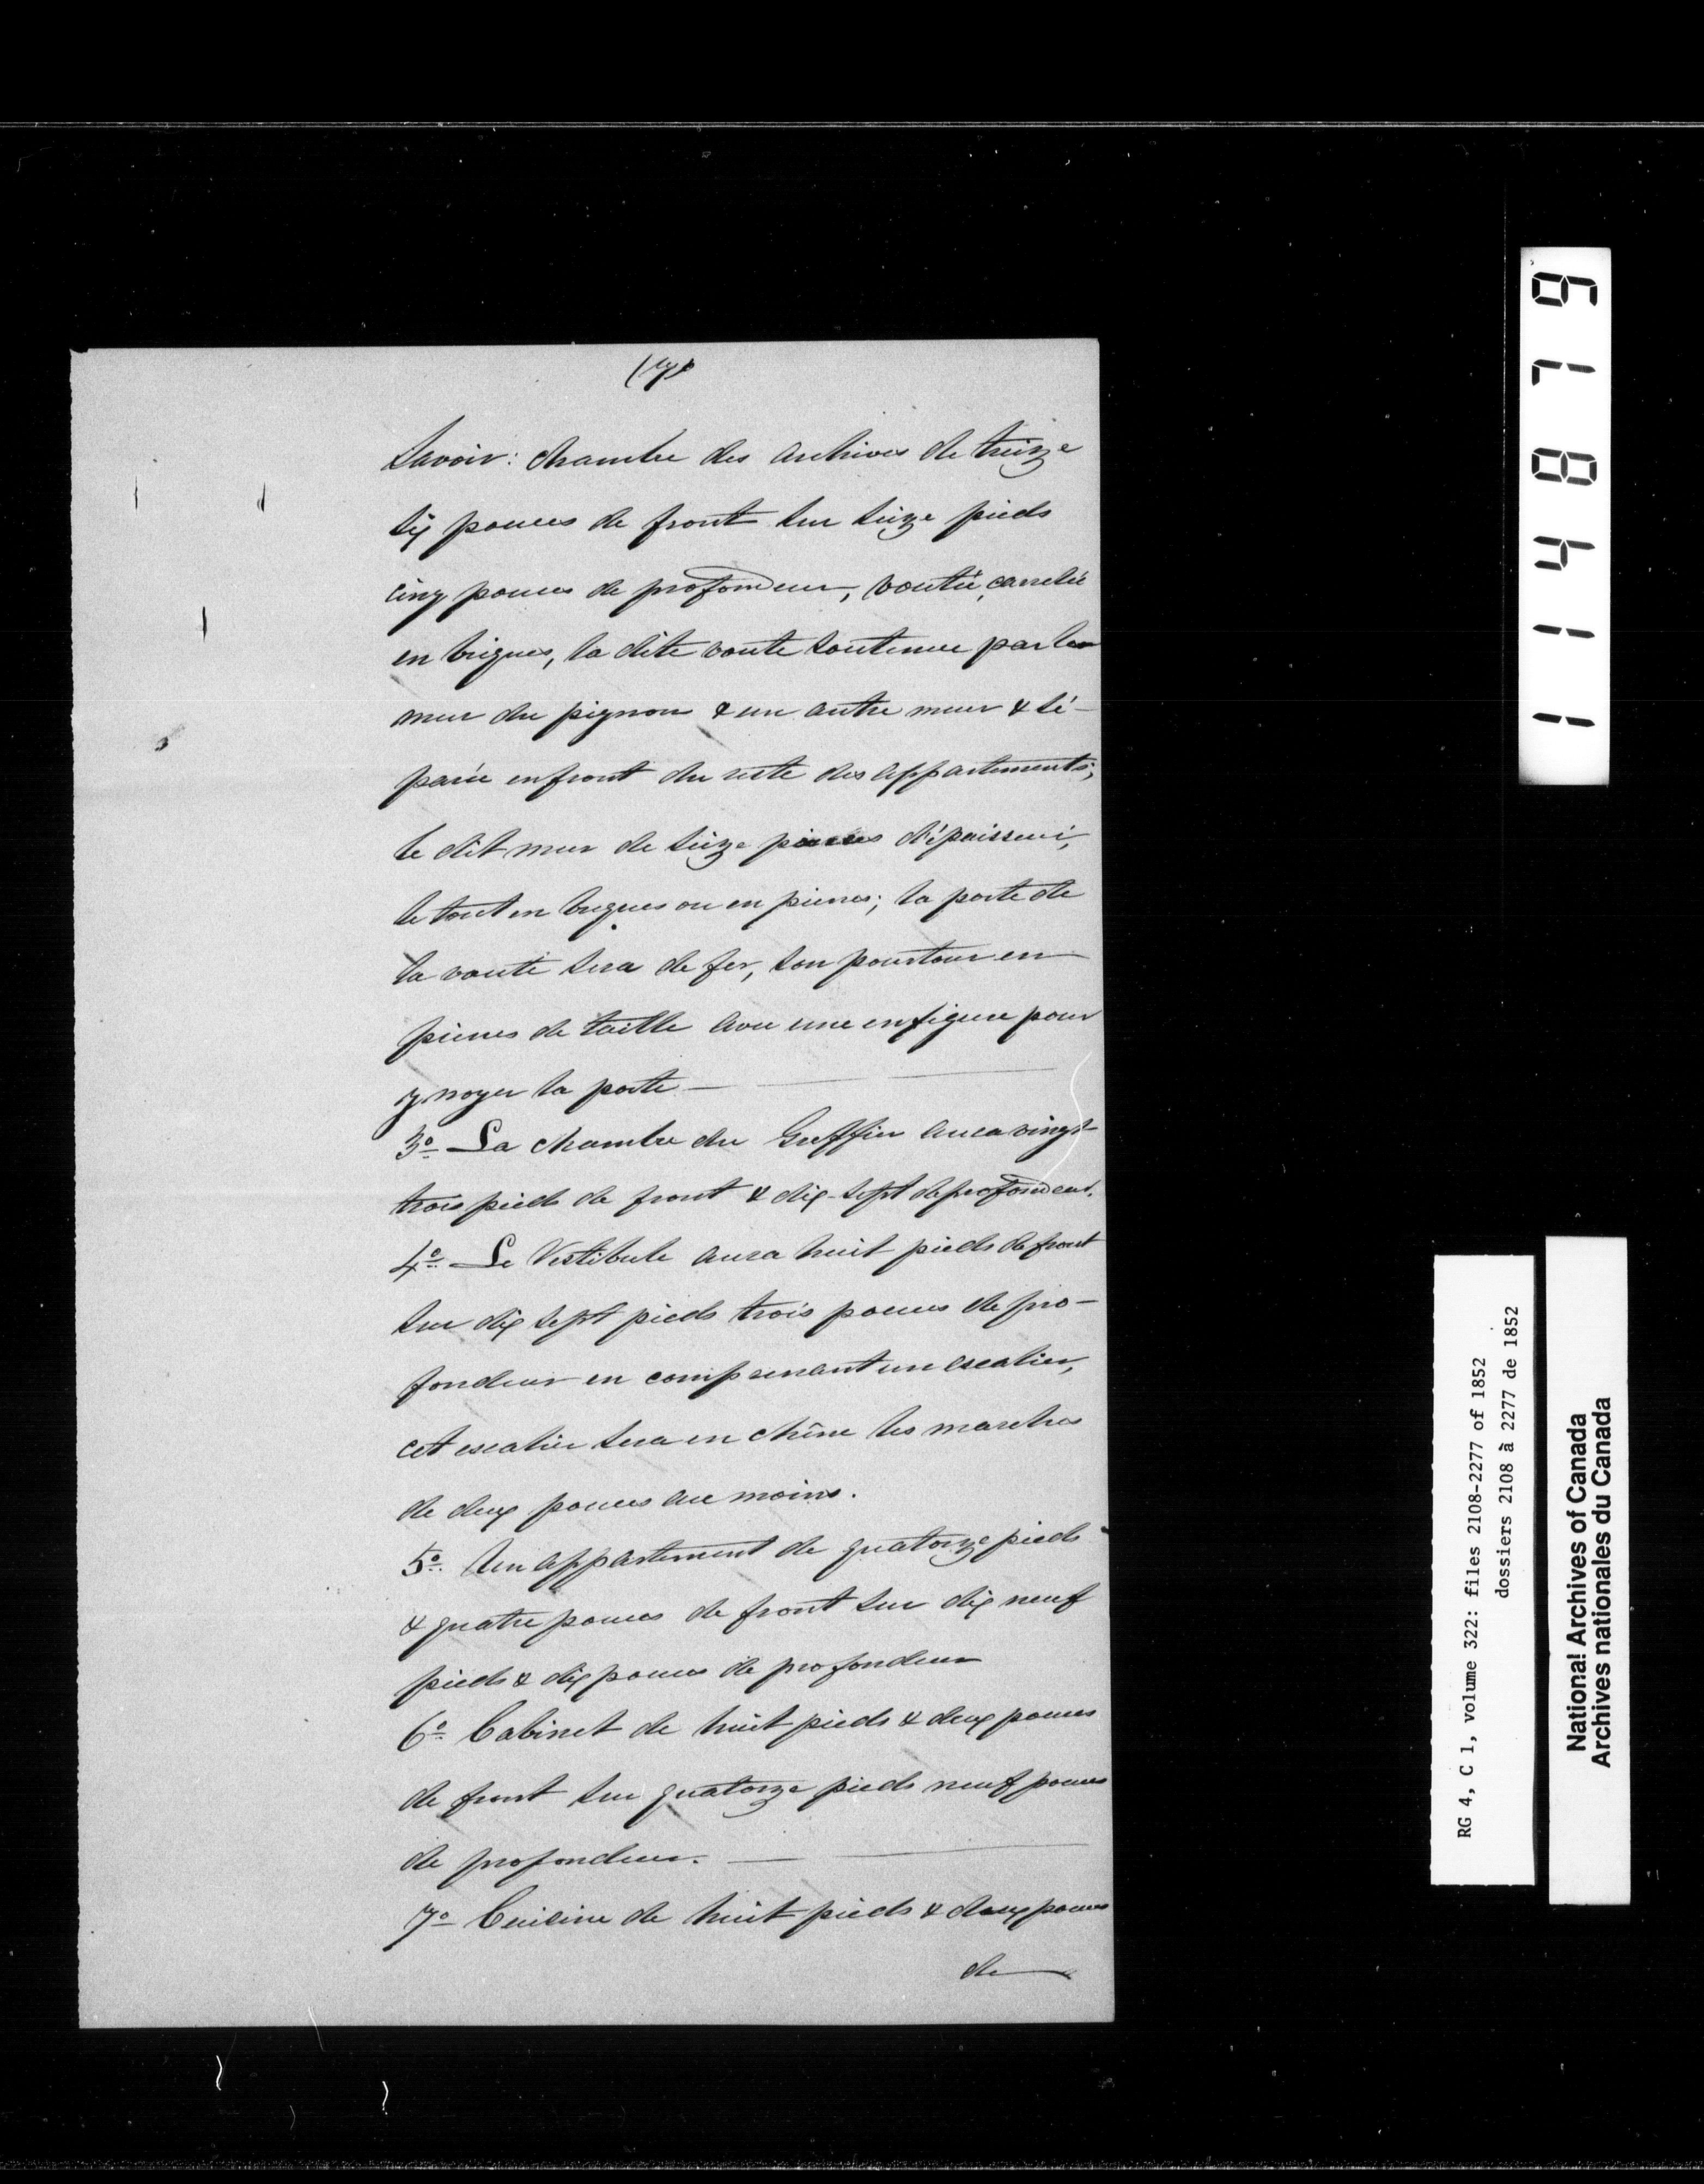 (7)
Savoir: Chambre des archives de treize
six pouces de front sur seize pieds
cinq pouces de profondeur, voutée, carrelée
en briques, la dite voute soutenue par le
mur du pignon & un autre mur & sé-
parée en front du reste des appartements;
le dit mur de seize pouces d'épaisseur,
le tout en briques ou en pierres; la porte de
la voute sera de fer, son pourtour en
pierres de taille avec une enfigure pour
y noyer la porte —
3o La chambre du Greffier aura vingt
trois pieds de front & dix-sept de profondeur.
4o Le Vestibule aura huit pieds de front
sur dix sept pieds trois pouces de pro-
fondeur en comprenant un escalier,
cet escalier sera en chêne les marches
de deux pouces au moins.
5o Un appartement de quatorze pieds
& quatre pouces de front sur dix neuf
pieds & dix pouces de profondeur
6o Cabinet de huit pieds & deux pouces
de front sur quatorze pieds neuf pouces
de profondeur. —
7o Cuisine de huit pieds & deux pouces
de
114879
RG 4, C 1, volume 322: files 2108-2277 of 1852
dossiers 2108 à 2277 de 1852
National Archives of Canada
Archives nationales du Canada